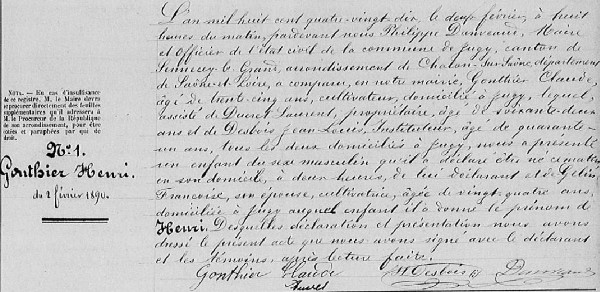 L'an mil huit cent quatre-vingt-dix, le deux février, à huit
heures du matin, pardevant nous Philippe Danveaud, Maire
et Officier de l'état civil de la commune de Jugy, canton de
Sennecey-le-Grand, arrondissement de Chalon-sur-Saône, département
de Saône et Loire, a comparu, en notre mairie, Gonthier Claude,
âgé de trente-cinq ans, cultivateur, domicilié à Jugy, lequel,
assisté de Ducret Laurent, propriétaire, âgé de soixante-deux
ans et de Desbois Jean-Louis, Instituteur, âgé de quarante-
un ans, tous les deux domiciliés à Jugy, nous a présenté
un enfant du sexe masculin qu'il a déclaré être né ce matin
en son domicile, à deux heures, de lui déclarant et de Gelin
Françoise, son épouse, cultivatrice, âgée de vingt-quatre ans,
domiciliée à Jugy auquel enfant il a donné le prénom de
Henri. Desquelles déclaration et présentation nous avons
dressé le présent acte que nous avons signé avec le déclarant
et les témoins, après lecture faite.
Gonthier Claude Desbois
NOTA. — En cas d'insuffisance
de ce registre, M. le Maire devra
se procurer directement des feuilles
supplémentaires qu'il adressera à
M. le Procureur de la République
de son arrondissement, pour être
cotées et paraphées par qui de
droit.
N° 1.
Gonthier Henri.
du 2 février 1890.